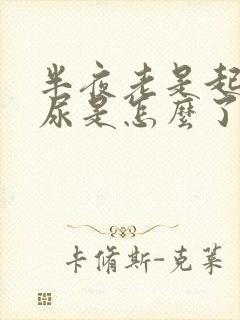 半夜老是起
尿是怎麼了
卡脩斯-克萊